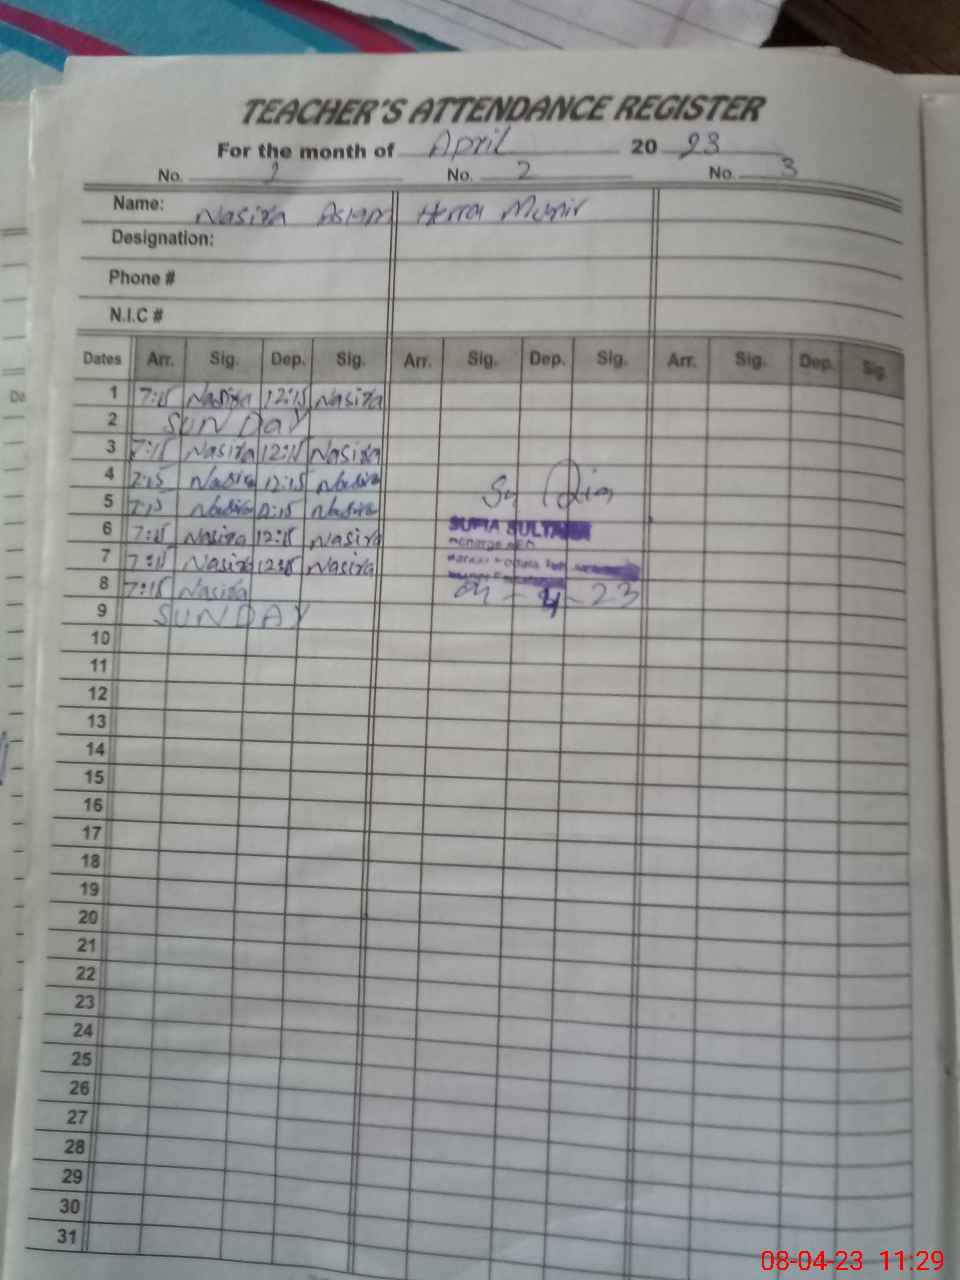 TEACHER'S ATTENDANCE REGISTER
For the month of April 20 23
No. 1 No. 2 No. 3
Name: Nasira Aslam Herra Munir
Designation:
Phone #
N.I.C #
Dates Arr. Sig. Dep. Sig. Arr. Sig. Dep. Sig. Arr. Sig. Dep. Sig.
1 7:15 Nasira 12:15 Nasira
2 SUNDAY
3 7:15 Nasira 12:15 Nasira
4 7:15 Nasira 12:15 Nasira
5 7:15 Nasira 12:15 Nasira
6 7:15 Nasira 12:15 Nasira
SUFIA SULTANA
7 7:15 Nasira 12:15 Nasira
8 7:15 Nasira
04-4-23
9 SUNDAY
10
11
12
13
14
15
16
17
18
19
20
21
22
23
24
25
26
27
28
29
30
31
08-04-23 11:29